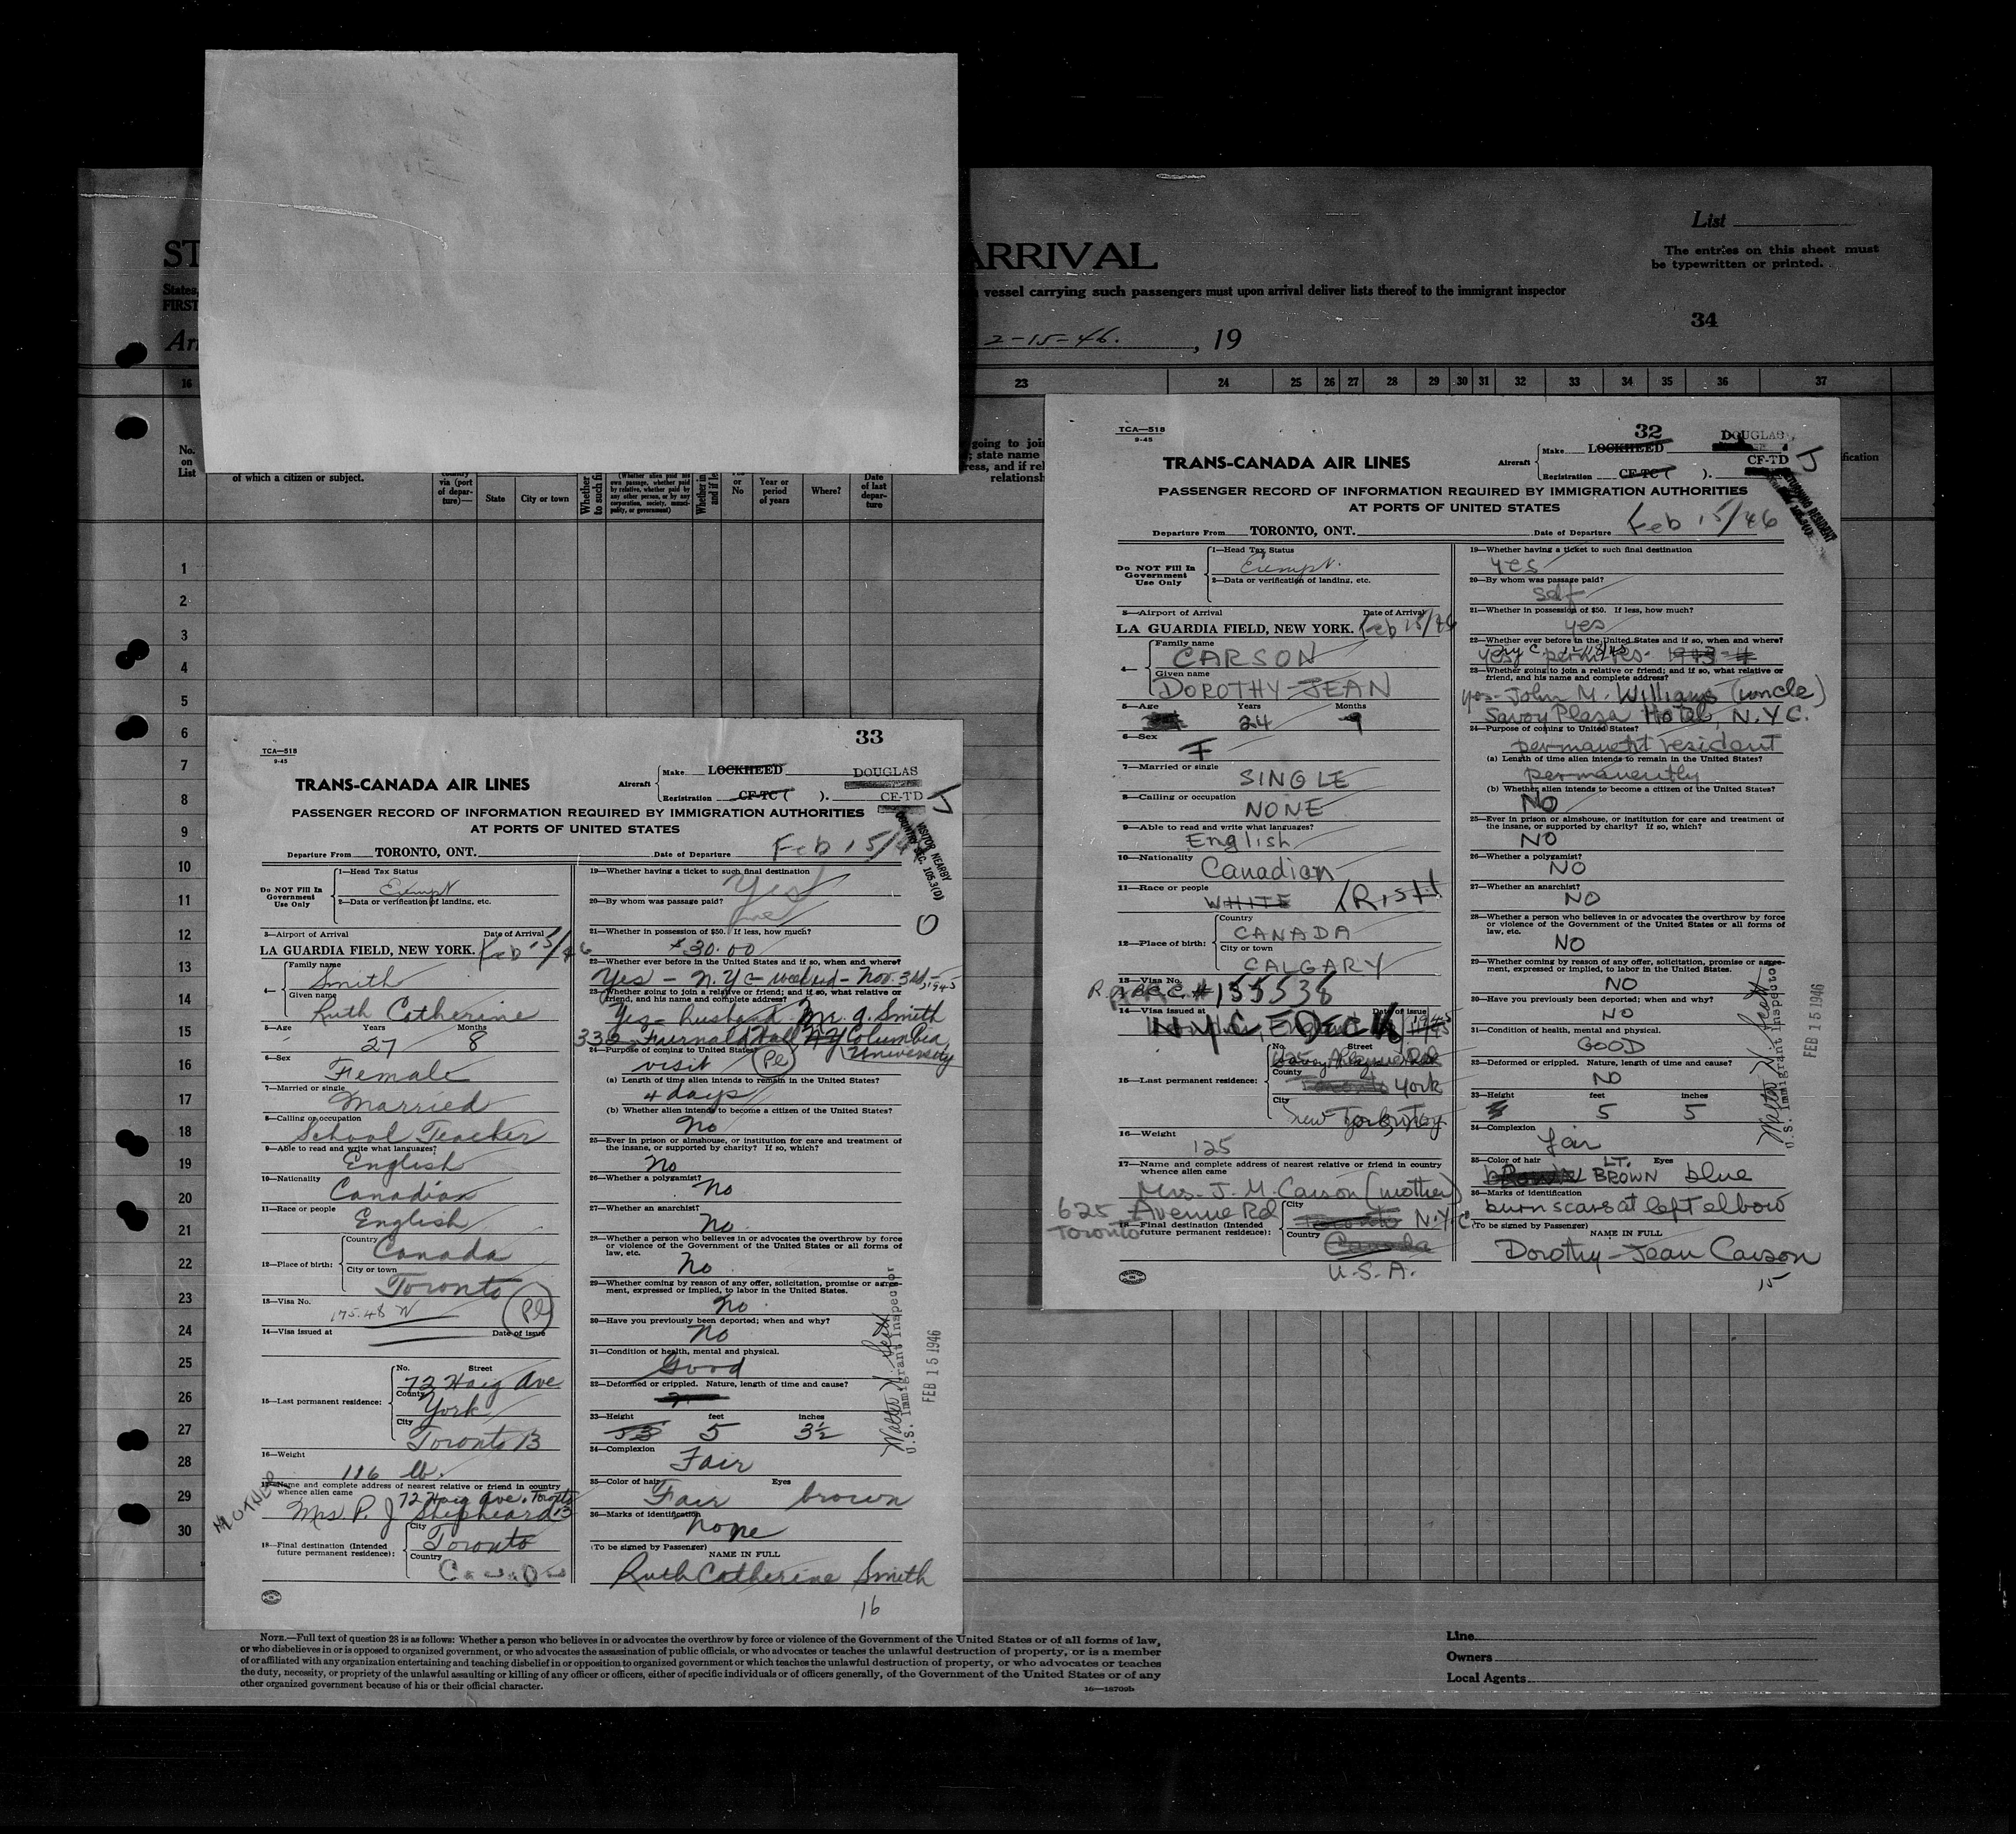 List
ARRIVAL
The entries on this sheet must
be typewritten or printed.
States,
vessel carrying such passengers must upon arrival deliver lists thereof to the immigrant inspector
FIRST
34
2-15-46. , 19
16 23 24 25 26 27 28 29 30 31 32 33 34 35 36 37
No.
on
List
of which a citizen or subject.
via (port
of depar-
ture)—
State
City or town
Whether
to such fi
(Whether alien paid his
own passage, whether paid
by relative, whether paid by
any other person, or by any
corporation, society, munici-
pality, or government)
or
No
Year or
period
of years
Where?
Date
of last
depar-
ture
going to joi
; state name
ress, and if rel
relationsh
1
2
3
4
5
6
7
8
9
10
11
12
13
14
15
16
17
18
19
20
21
22
23
24
25
26
27
28
29
30
33
TCA—518
9-45
TRANS-CANADA AIR LINES
Aircraft
Make LOCKHEED DOUGLAS
Registration CF-TC ( ). CF-TD J
PASSENGER RECORD OF INFORMATION REQUIRED BY IMMIGRATION AUTHORITIES
AT PORTS OF UNITED STATES
VISITOR NEARBY
COUNTRY SEC. 105.3(D)
Departure From TORONTO, ONT. Date of Departure Feb 15/46
Do NOT Fill In
Government
Use Only
1—Head Tax Status
Exempt
2—Data or verification of landing, etc.
3—Airport of Arrival Date of Arrival
LA GUARDIA FIELD, NEW YORK. Feb 15/46
4—
Family name
Smith
Given name
Ruth Catherine
5—Age Years Months
27 8
6—Sex
Female
7—Married or single
Married
8—Calling or occupation
School Teacher
9—Able to read and write what languages?
English
10—Nationality
Canadian
11—Race or people
English
12—Place of birth:
Country
Canada
City or town
Toronto
13—Visa No.
175.48 N
14—Visa issued at Date of issue
15—Last permanent residence:
No. Street
72 Haig Ave
County
York
City
Toronto 13
16—Weight
116 lb.
17—Name and complete address of nearest relative or friend in country
whence alien came
72 Haig Ave. Toronto
MOTHER
Mrs P. J. Shepheard 13
18—Final destination (Intended
future permanent residence):
City
Toronto
Country
Canada
19—Whether having a ticket to such final destination
Yes
20—By whom was passage paid?
me
21—Whether in possession of $50. If less, how much?
$30.00
0
22—Whether ever before in the United States and if so, when and where?
Yes - N.Y.C - weekend - Nov. 3rd, 1945
23—Whether going to join a relative or friend; and if so, what relative or
friend, and his name and complete address?
Yes - husband Mr. G. Smith
332 Furnald Hall NY Columbia
University
24—Purpose of coming to United States?
visit
(a) Length of time alien intends to remain in the United States?
4 days
(b) Whether alien intends to become a citizen of the United States?
No
25—Ever in prison or almshouse, or institution for care and treatment of
the insane, or supported by charity? If so, which?
No
26—Whether a polygamist?
No
27—Whether an anarchist?
No
28—Whether a person who believes in or advocates the overthrow by force
or violence of the Government of the United States or all forms of
law, etc.
No
29—Whether coming by reason of any offer, solicitation, promise or agree-
ment, expressed or implied, to labor in the United States.
No
30—Have you previously been deported; when and why?
No
31—Condition of health, mental and physical.
Good
32—Deformed or crippled. Nature, length of time and cause?
33—Height feet inches
53 5 3½
34—Complexion
Fair
35—Color of hair Eyes
Fair brown
36—Marks of identification
none
(To be signed by Passenger)
NAME IN FULL
Ruth Catherine Smith
16
U.S. Immigrant Inspector
FEB 15 1946
32
TCA—518
9-45
TRANS-CANADA AIR LINES
Aircraft
Make LOCKHEED DOUGLAS
Registration CF-TC ( ). CF-TD J
PASSENGER RECORD OF INFORMATION REQUIRED BY IMMIGRATION AUTHORITIES
AT PORTS OF UNITED STATES
RETURNING RESIDENT
Departure From TORONTO, ONT. Date of Departure Feb 15/46
Do NOT Fill In
Government
Use Only
1—Head Tax Status
Exempt.
2—Data or verification of landing, etc.
3—Airport of Arrival Date of Arrival
LA GUARDIA FIELD, NEW YORK. Feb 15/46
4—
Family name
CARSON
Given name
DOROTHY-JEAN
5—Age Years Months
24 9
6—Sex
F
7—Married or single
SINGLE
8—Calling or occupation
NONE
9—Able to read and write what languages?
English
10—Nationality
Canadian
11—Race or people
WHITE IRISH
12—Place of birth:
Country
CANADA
City or town
CALGARY
13—Visa No.
#155538
14—Visa issued at Date of issue
NYC 1945
15—Last permanent residence:
No. Street
County
York
City
New York
16—Weight
125
17—Name and complete address of nearest relative or friend in country
whence alien came
Mrs. J. M. Carson (mother)
625 Avenue Rd
Toronto
18—Final destination (Intended
future permanent residence):
City
Toronto N.Y.C.
Country
Canada
U.S.A.
19—Whether having a ticket to such final destination
yes
20—By whom was passage paid?
self
21—Whether in possession of $50. If less, how much?
yes
22—Whether ever before in the United States and if so, when and where?
yes
23—Whether going to join a relative or friend; and if so, what relative or
friend, and his name and complete address?
yes - John M. Williams (uncle)
Savoy Plaza Hotel, N.Y.C.
24—Purpose of coming to United States?
permanent resident
(a) Length of time alien intends to remain in the United States?
permanently
(b) Whether alien intends to become a citizen of the United States?
NO
25—Ever in prison or almshouse, or institution for care and treatment of
the insane, or supported by charity? If so, which?
NO
26—Whether a polygamist?
NO
27—Whether an anarchist?
NO
28—Whether a person who believes in or advocates the overthrow by force
or violence of the Government of the United States or all forms of
law, etc.
NO
29—Whether coming by reason of any offer, solicitation, promise or agree-
ment, expressed or implied, to labor in the United States.
NO
30—Have you previously been deported; when and why?
NO
31—Condition of health, mental and physical.
GOOD
32—Deformed or crippled. Nature, length of time and cause?
NO
33—Height feet inches
5 5
34—Complexion
fair
35—Color of hair Eyes
LT. BROWN blue
36—Marks of identification
burn scars at left elbow
(To be signed by Passenger)
NAME IN FULL
Dorothy-Jean Carson
15
U.S. Immigrant Inspector
FEB 15 1946
NOTE.—Full text of question 28 is as follows: Whether a person who believes in or advocates the overthrow by force or violence of the Government of the United States or of all forms of law,
or who disbelieves in or is opposed to organized government, or who advocates the assassination of public officials, or who advocates or teaches the unlawful destruction of property, or is a member
of or affiliated with any organization entertaining and teaching disbelief in or opposition to organized government or which teaches the unlawful destruction of property, or who advocates or teaches
the duty, necessity, or propriety of the unlawful assaulting or killing of any officer or officers, either of specific individuals or of officers generally, of the Government of the United States or of any
other organized government because of his or their official character.
16—18709b
Line
Owners
Local Agents